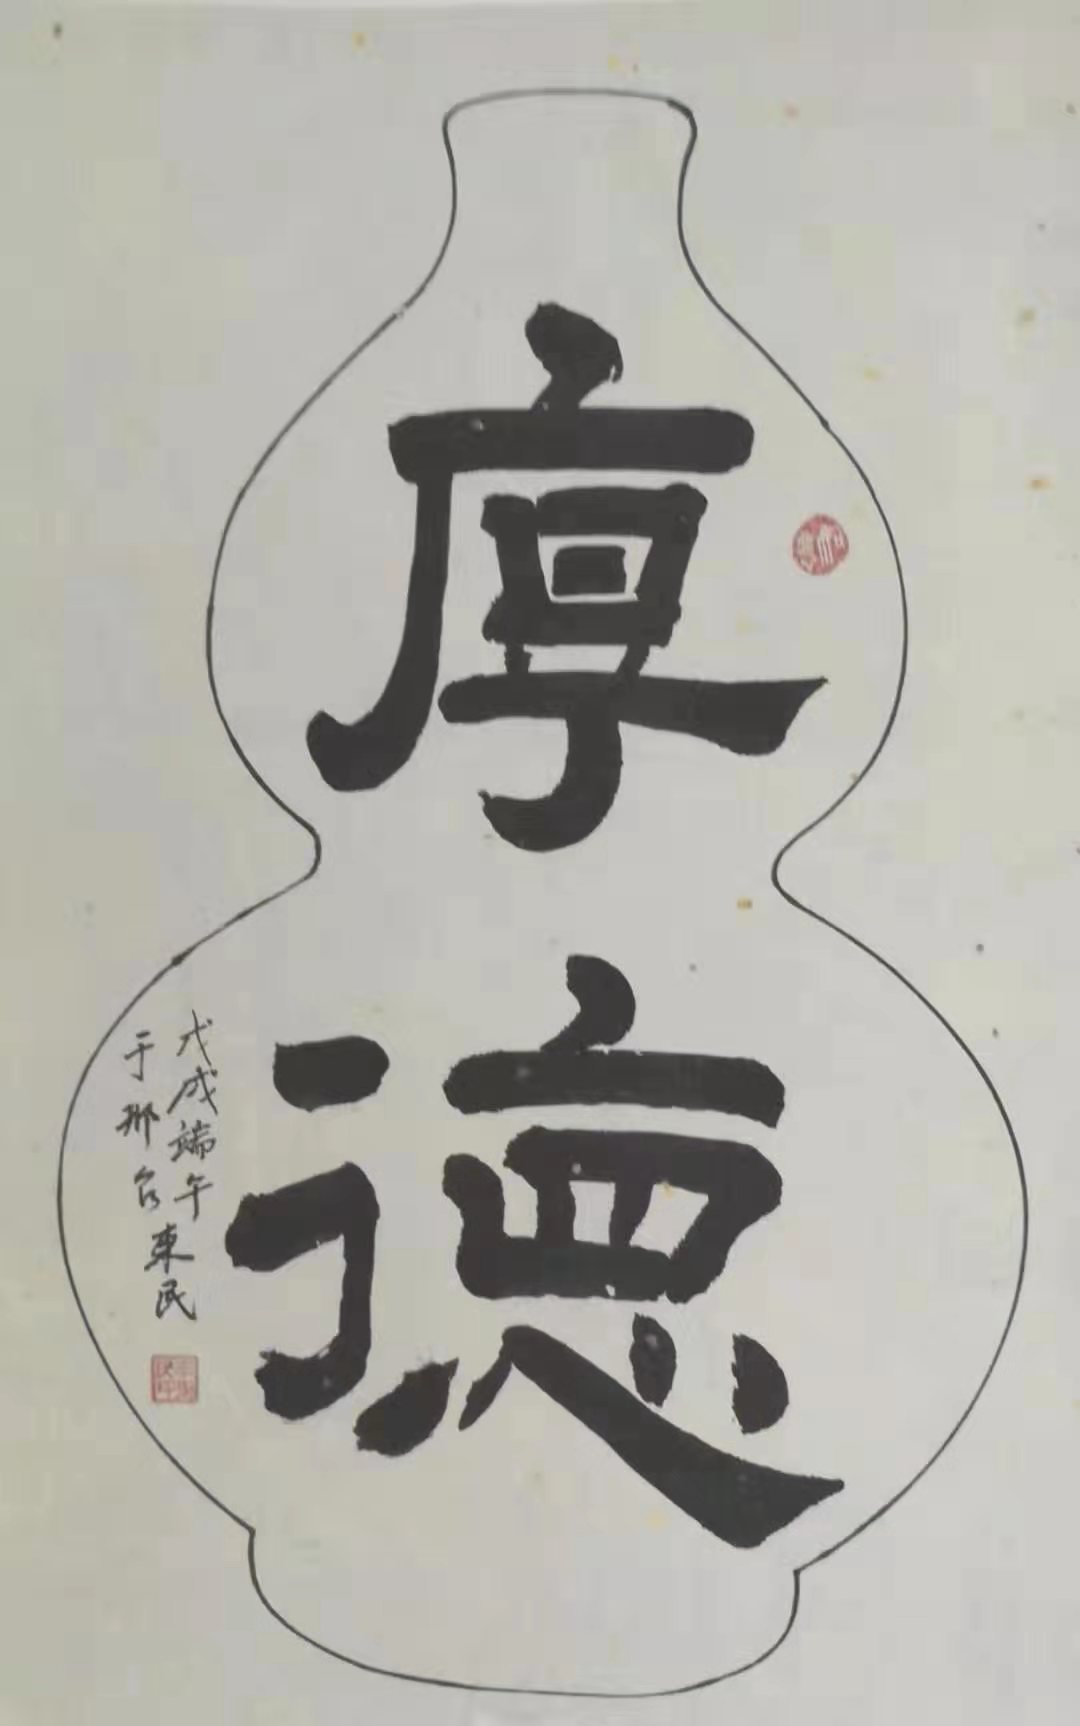 厚
德
戊戌端午
于邢台東民